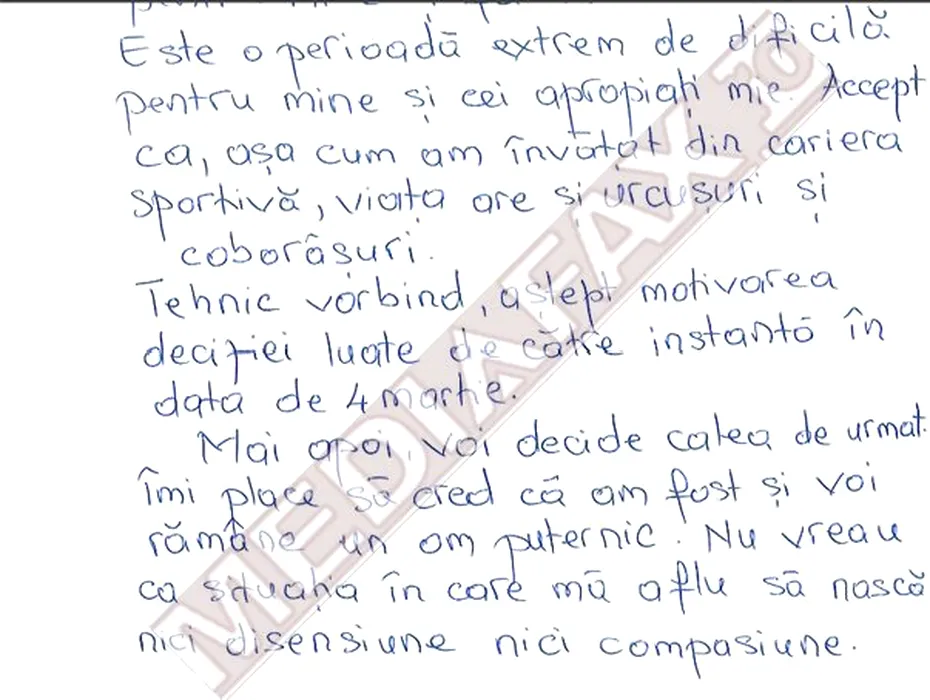 Este o perioadă extrem de dificilă
pentru mine și cei apropiați mie. Accept
ca, așa cum am învățat din cariera
sportivă, viața are și urcușuri și
coborâșuri.
Tehnic vorbind, aștept motivarea
deciziei luate de către instanță în
data de 4 martie.
Mai apoi, voi decide calea de urmat.
Îmi place să cred că am fost și voi
rămâne un om puternic. Nu vreau
ca situația în care mă aflu să nască
nici disensiune nici compasiune.
MEDIAFAX.ro